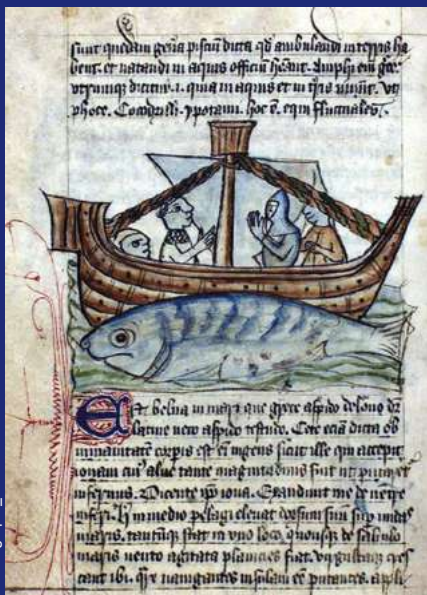 sunt quedam genera pisciu dicta qd ambulandi in terris ha
bent. et natandi in aquis officiu heant. Amphi em grece
utrumq dicitur. i. quia in aquis et in tris uiuut. vt
phoce. Cocodrilli. ypotami. hoc e. equi fluctuales.
Est belua in mari que grece aspido delone dr
latine uero aspido testudo. Cete ecia dicta ob
immanitate corpis est em ingens sicut ille qui accepit
ionam cui alue tante magnitudinis fuit ut putaret
infernus. Dicente ipo iona. Exaudiuit me de uentre
inferi. h in medio pelagi eleuat dorsum suu sup undas
maris. tantuq stat in uno loco. quousq de sabulo
maris uento agitata planicies fiat. virgulta q cres
cant ibi. qre nauigantes insulam ee putantes. appli